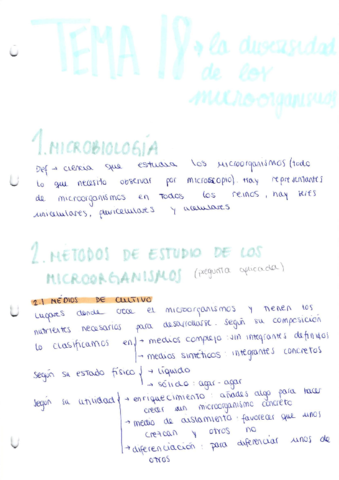 TEMA 18 → la diversidad
de los
microorganismos
1. MICROBIOLOGÍA
Def → ciencia que estudia los microorganismos (todo
lo que necesito observar por microscopio). Hay representantes
de microorganismos en todos los reinos, hay seres
unicelulares, pluricelulares y acelulares
2. MÉTODOS DE ESTUDIO DE LOS
MICROORGANISMOS (pregunta aplicada)
2.1 MEDIOS DE CULTIVO
Lugares donde crece el microorganismos y tienen los
nutrientes necesarios para desarrollarse. Según su composición
lo clasificamos en → medios complejo: sin integrantes definidos
→ medios sintéticos: integrantes concretos
Según su estado físico → líquido
→ sólido: agar-agar
Según su utilidad → enriquecimiento: añades algo para hacer
crecer un microorganismo concreto
→ medio de aislamiento: favorecer que unos
crezcan y otros no
→ diferenciación: para diferenciar unos de
otros